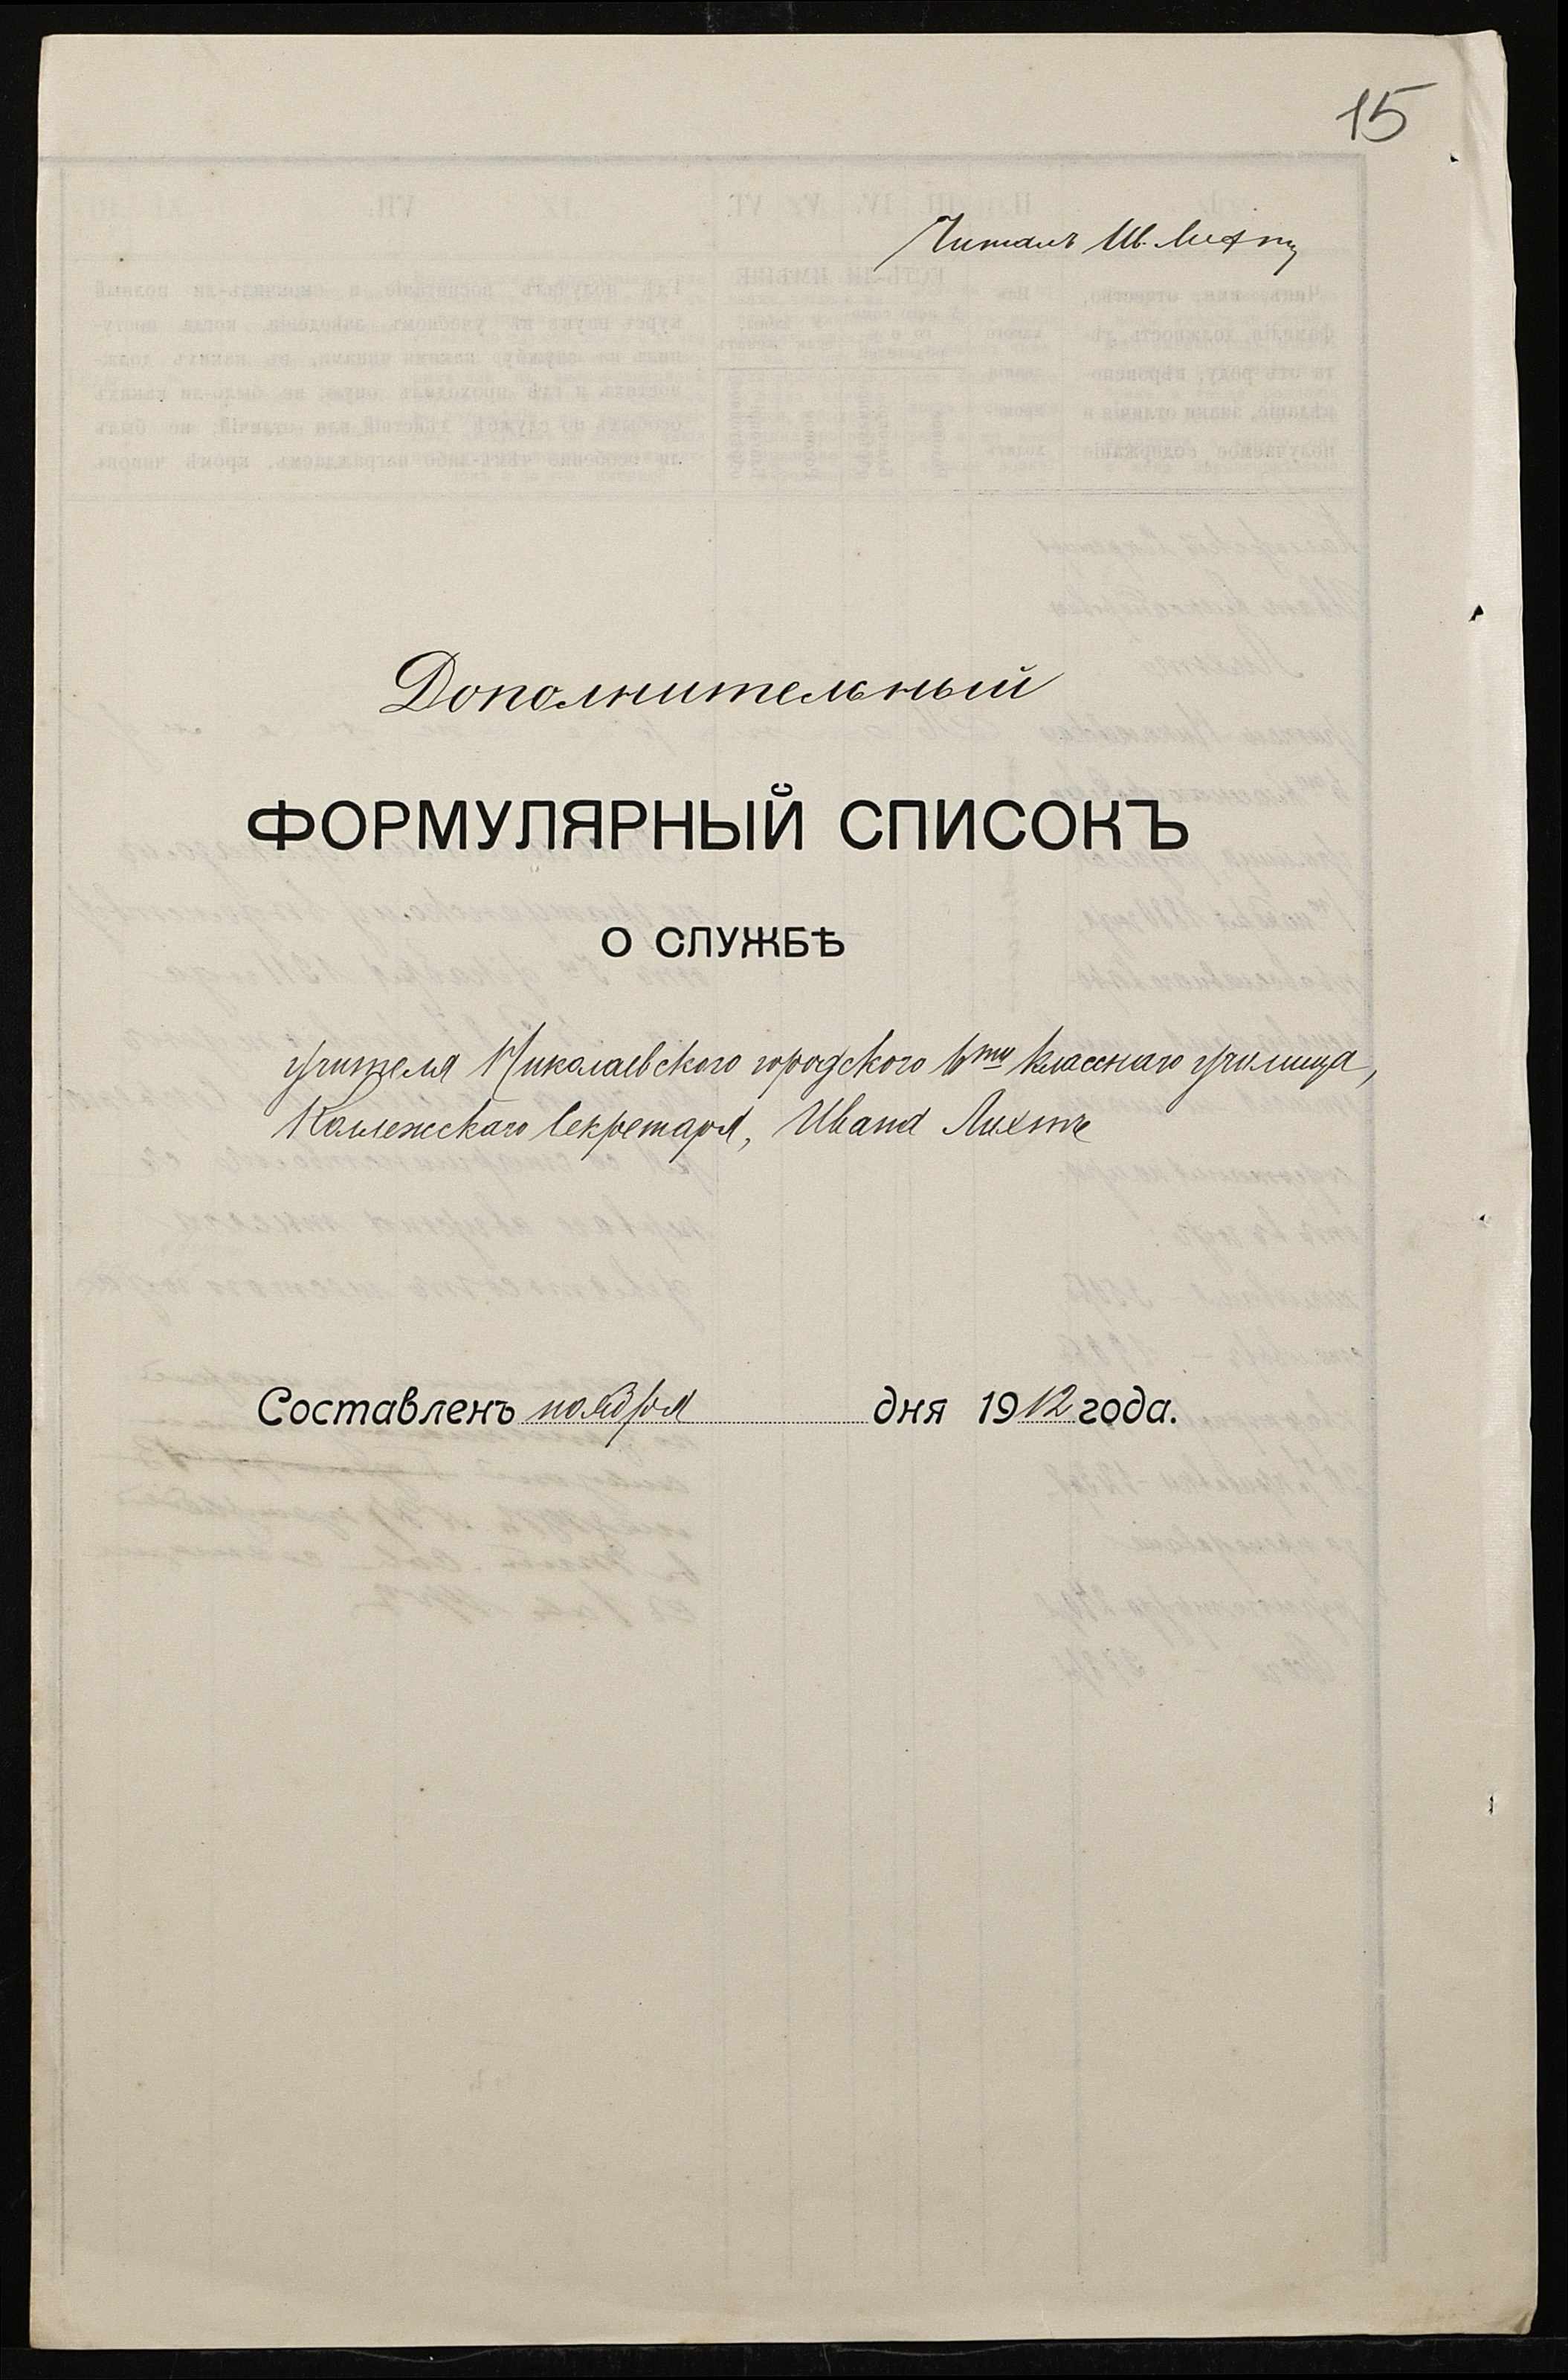 15
Читалъ Ив. Лихтъ
Дополнительный
ФОРМУЛЯРНЫЙ СПИСОКЪ
О СЛУЖБѢ
учителя Николаевского городского 6ти класснаго училища,
Коллежскаго Секретаря, Ивана Лихтъ
Составленъ ноября дня 1912 года.